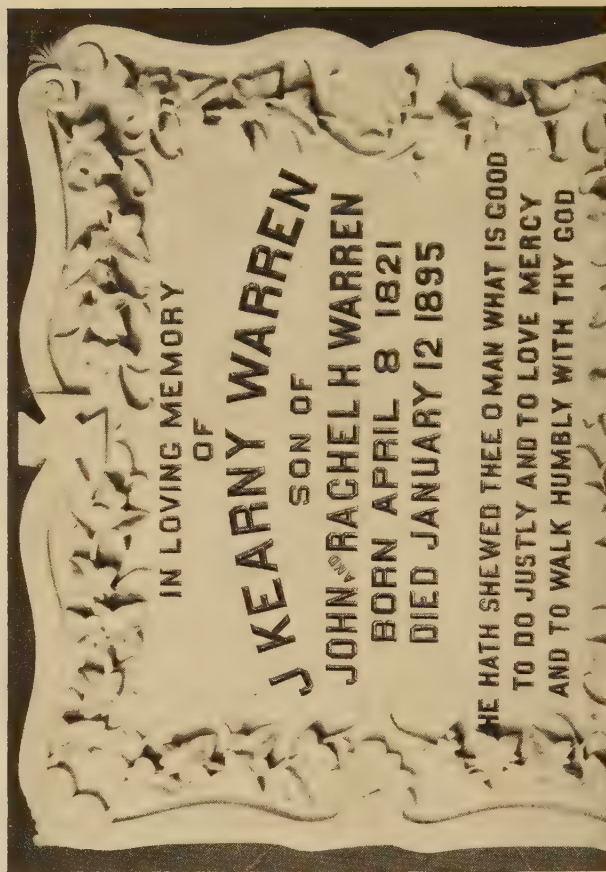 IN LOVING MEMORY
OF
J KEARNY WARREN
SON OF
JOHN AND RACHEL H WARREN
BORN APRIL 8 1821
DIED JANUARY 12 1895
HE HATH SHEWED THEE O MAN WHAT IS GOOD
TO DO JUSTLY AND TO LOVE MERCY
AND TO WALK HUMBLY WITH THY GOD